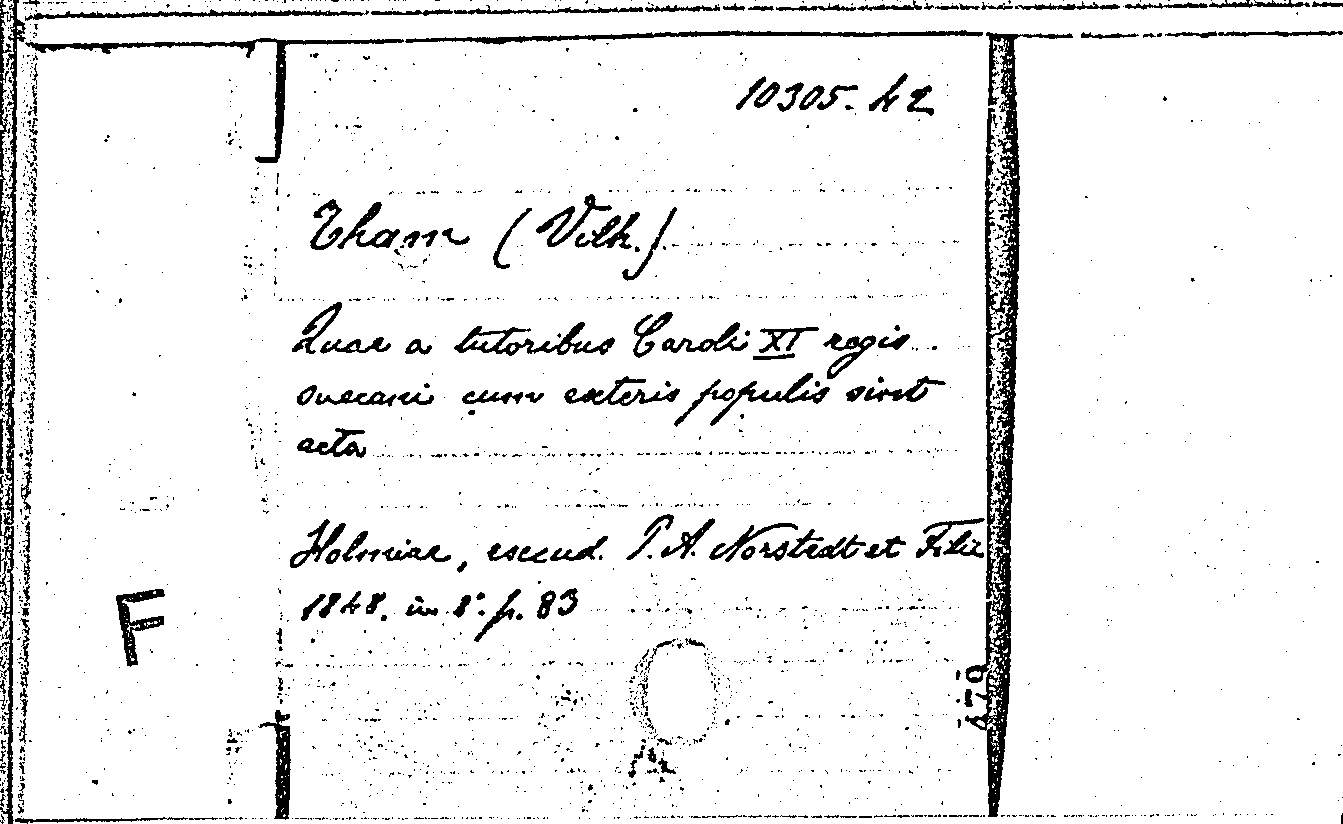 10305. 42
Tham (Vilh.)
Quae a tutoribus Caroli XI regis
suecani cum exteris populis sint
acta
Holmiae, excud. P. A. Norstedt et Filii
1848. in 8°. p. 83
F
479